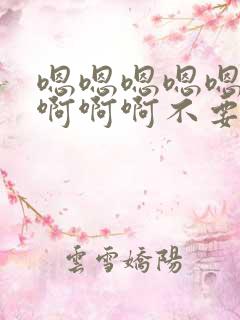 嗯嗯嗯嗯嗯
啊啊啊不要
雲雪嬌陽